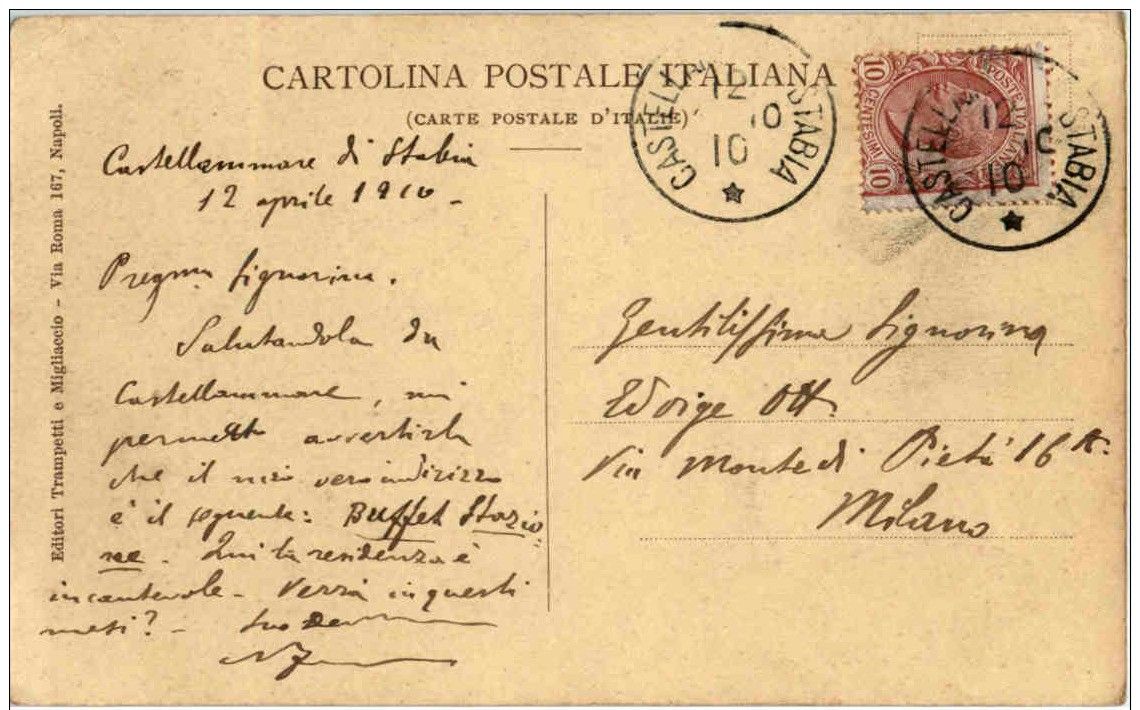 CARTOLINA POSTALE ITALIANA
(CARTE POSTALE D'ITALIE)
Editori Trampetti e Migliaccio - Via Roma 167, Napoli.
CASTELL STABIA
12
10
10
POSTE ITALIANE
10 CENTESIMI 10
CASTELL STABIA
12
10
10
Castellammare di Stabia
12 aprile 1910 -
Pregma Signorina.
Salutandola da
Castellammare, mi
permetto avvertirla
che il mio vero indirizzo
è il seguente: Buffet Stazio
ne. Qui la residenza è
incantevole - Verrà in questi
mesi? - Suo
Gentilissima Signorina
Edvige Ott.
Via Monte di Pietà 16
Milano